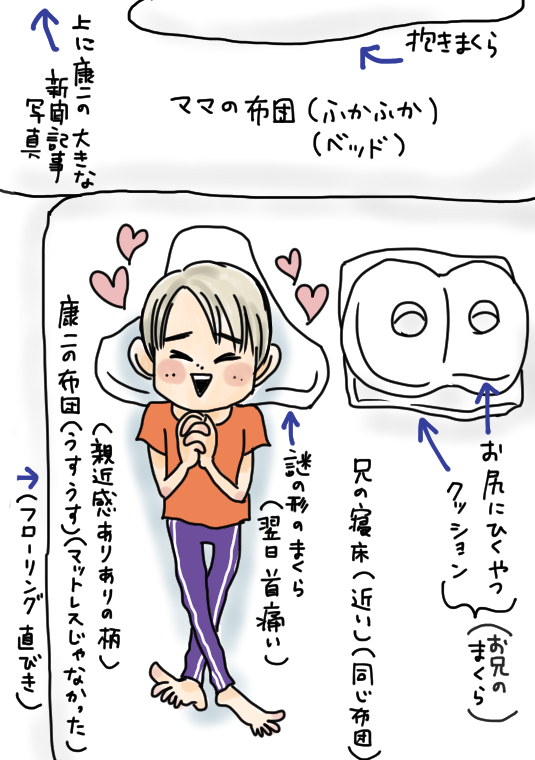 上に康二の大きな
新聞記事
写真
抱きまくら
ママの布団(ふかふか)
(ベッド)
お尻にひくやつ
クッション
(お兄の
まくら)
兄の寝床(近い)(同じ布団)
謎の形のまくら
(翌日首痛い)
(親近感ありありの柄)
康二の布団(うすうす)(マットレスじゃなかった)
(フローリング直びき)